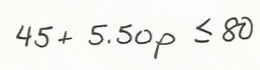 45 + 5.50p ≤ 80